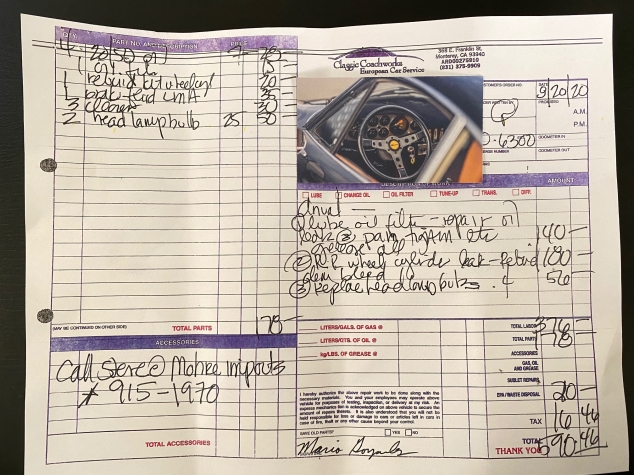 QTY. PART NO. AND DESCRIPTION PRICE
4 20/50 oil 7 28
1 oil filter 15
1 rebuild kit wheel cyl 20
1 brake fluid LMA 25
3 cleaner 30
2 headlamp bulb 25 50
(MAY BE CONTINUED ON OTHER SIDE) TOTAL PARTS 178
ACCESSORIES
Call Steve @ Motree Imports
* 915-1970
TOTAL ACCESSORIES
Classic Coachworks
European Car Service
E. Franklin St.
Monterey, CA 93940
ARD00275919
(831) 375-9909
DATE 9/20/20
PROMISED A.M.
P.M.
ODOMETER IN
ODOMETER OUT
AMOUNT
LUBE CHANGE OIL OIL FILTER TUNE-UP TRANS. DIFF.
① lube oil filter - repair oil
leak @ pan tighten etc 140
grease all
② R+R wheel cylinder leak - rebuild 180
clean bleed
③ Replace headlamp bulbs . 4 56
LITERS/GALS. OF GAS @
LITERS/QTS. OF OIL @
kg/LBS. OF GREASE @
TOTAL LABOR 376
TOTAL PARTS 178
ACCESSORIES
GAS, OIL
AND GREASE
SUBLET REPAIRS
EPA/WASTE DISPOSAL 20
TAX 16 46
TOTAL 590.46
THANK YOU
I hereby authorize the above repair work to be done along with the
necessary materials. You and your employees may operate above
vehicle for purposes of testing, inspection, or delivery at my risk. An
express mechanics lien is acknowledged on above vehicle to secure the
amount of repairs thereto. It is also understood that you will not be
held responsible for loss or damage to cars or articles left in cars in
case of fire, theft or any other cause beyond your control.
SAVE OLD PARTS? YES NO
Mario Gonzalez